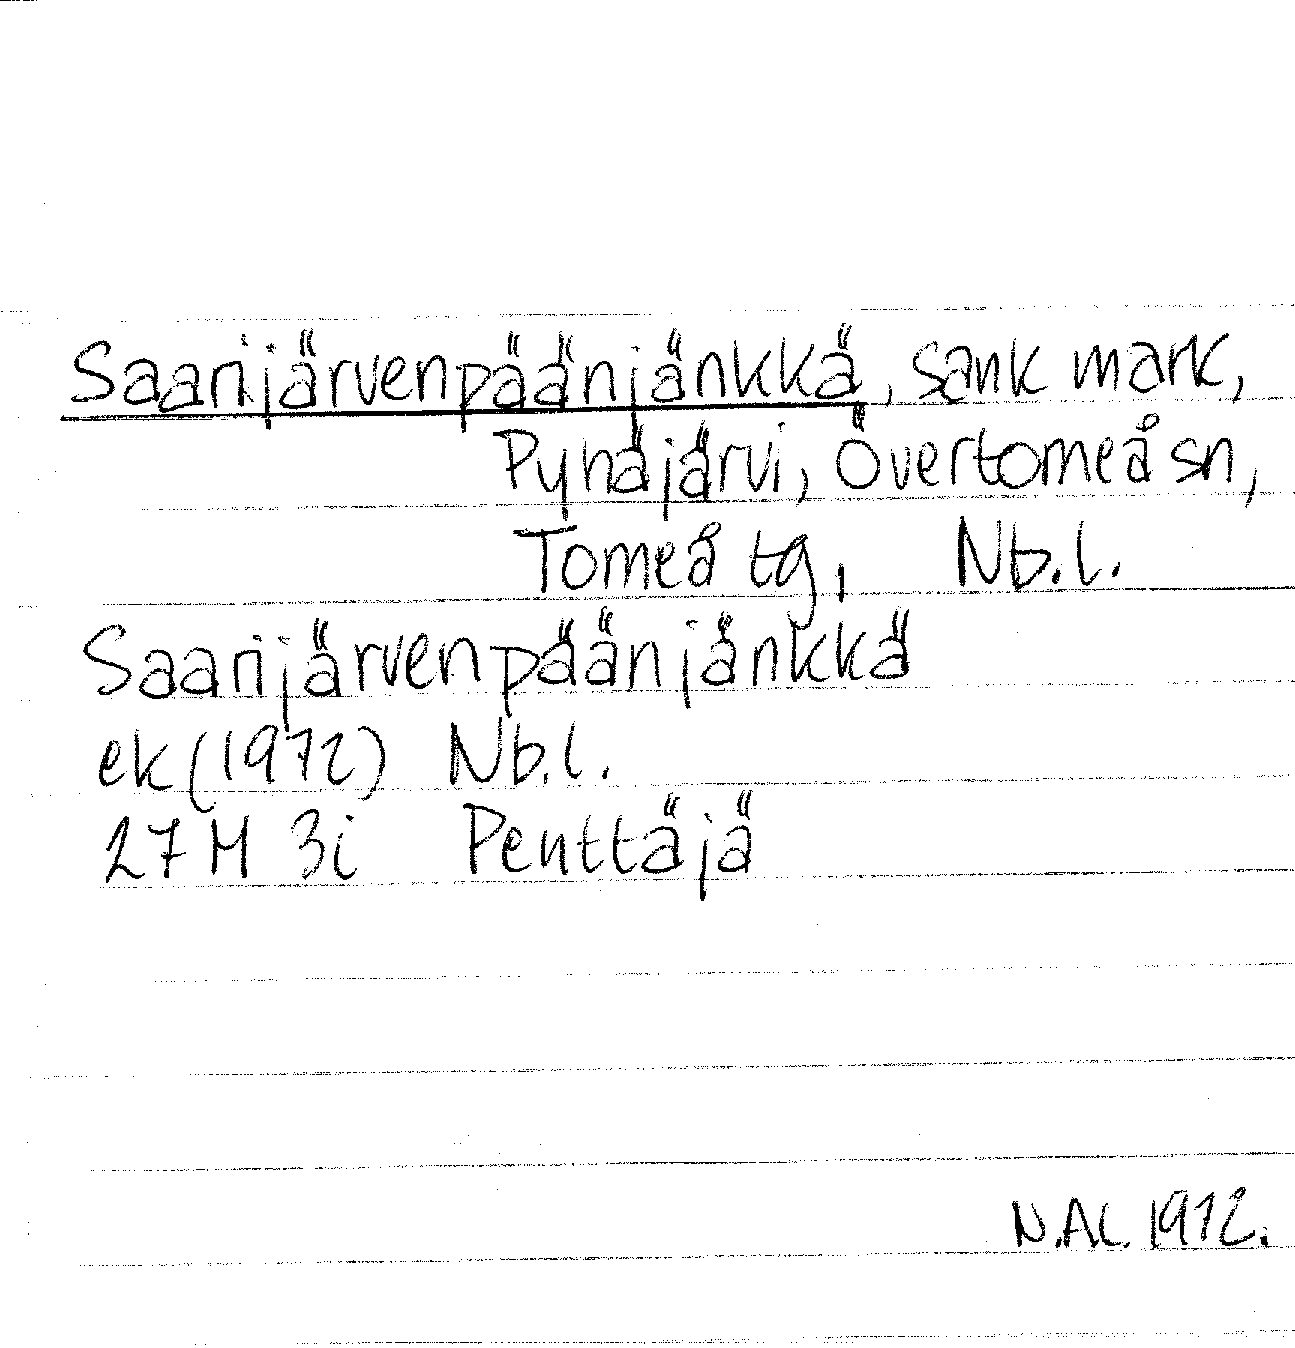 Saarijärvenpäänjänkkä, sank mark,
Pyhäjärvi, Övertorneå sn,
Torneå tg, Nb.l.
Saarijärvenpäänjänkkä
ek (1972) Nb.l.
27 M 3i Penttäjä
N.Al. 1972.